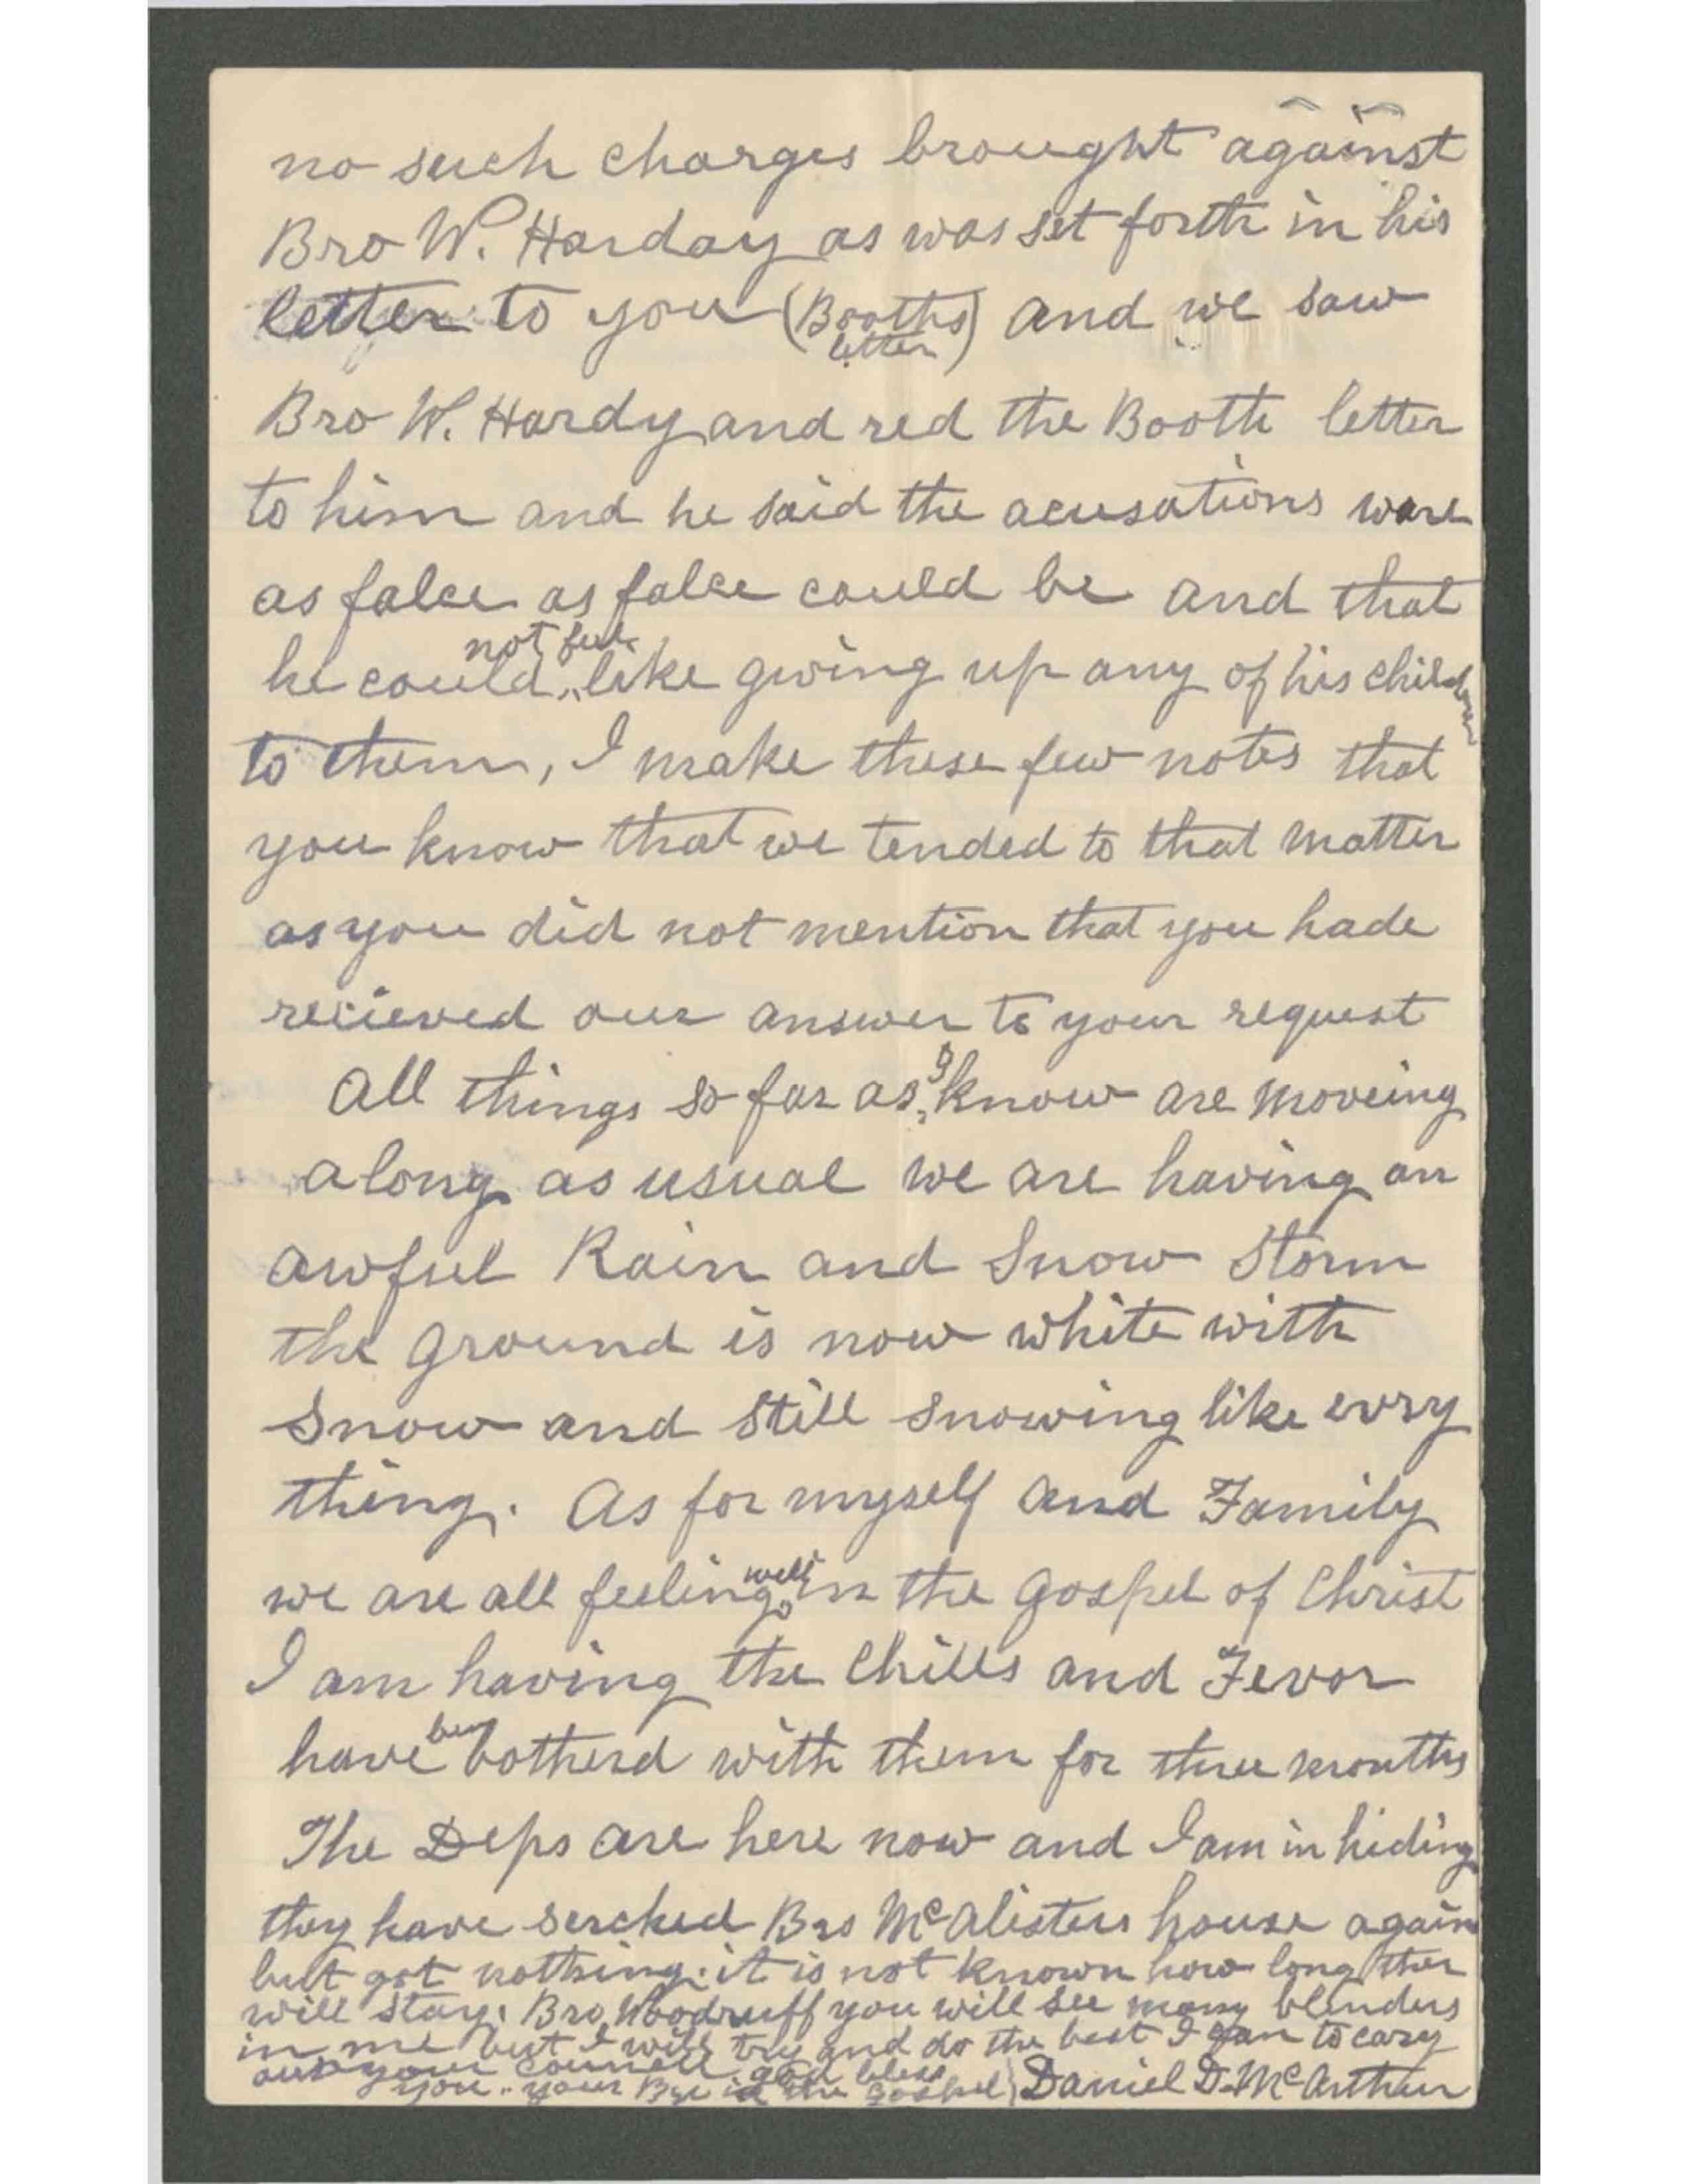 no such charges brought against
Bro W. Harday as was set forth in his
letter to you (Booths letter) and we saw
Bro W. Hardy and red the Booth letter
to him and he said the acusations ware
as falce as falce could be and that
he could not feel like giving up any of his children
to them, I make these few notes that
you know that we tended to that matter
as you did not mention that you hade
recieved our answer to your request
All things so far as I know are moveing
along as usual we are having an
awful Rain and Snow Storm
the ground is now white with
Snow and still snowing like evry
thing. As for myself and Family
we are all feeling well in the gospel of Christ
I am having the Chills and Fevor
have ben botherd with them for three months
The Deps are here now and I am in hiding
they have serched Bro McAlisters house again
but got nothing. it is not known how long ther
will stay. Bro, Woodruff you will see many blunders
in me but I will try and do the best I can to cary
out your councell god bless
you.. your Bro in the Gospel) Daniel D. McArthur